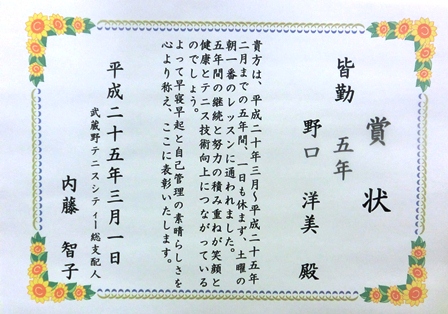 賞状
皆勤 五年
野口 洋美 殿
貴方は、平成二十年三月〜平成二十五年
二月までの五年間、一日も休まず、土曜の
朝一番のレッスンに通われました。
五年間の継続と努力の積み重ねが笑顔と
健康とテニス技術向上につながっている
のでしょう。
よって早寝早起と自己管理の素晴らしさを
心より称え、ここに表彰いたします。
平成二十五年三月一日
武蔵野テニスシティー総支配人
内藤 智子